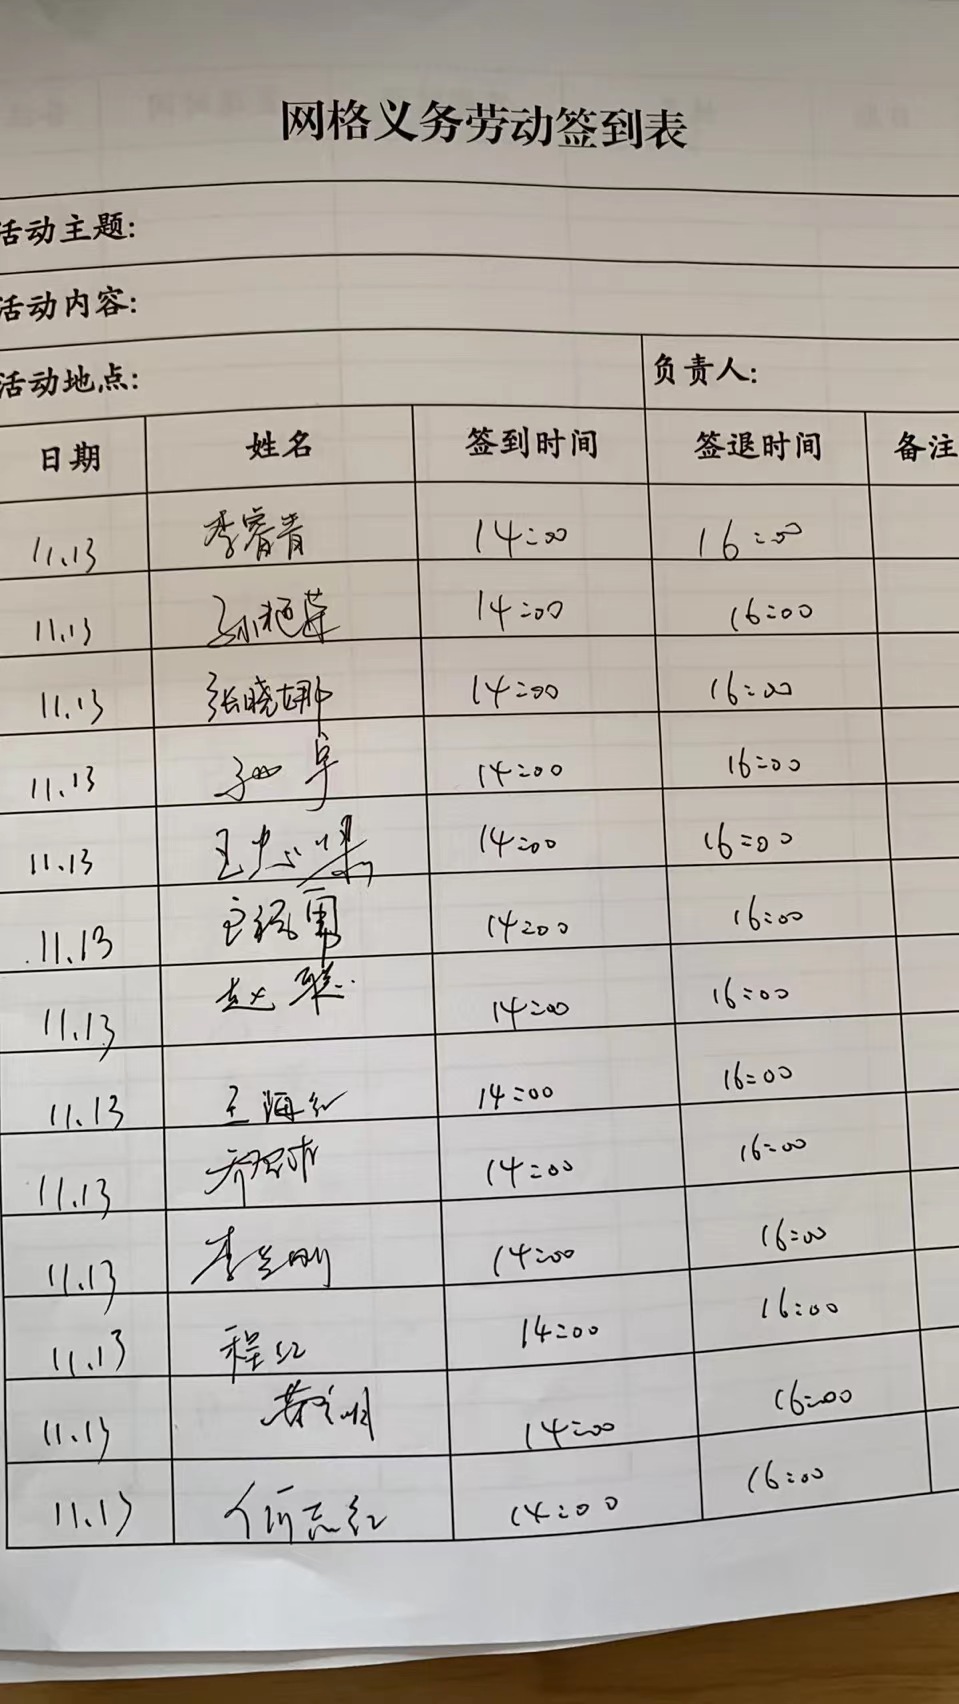 网格义务劳动签到表
活动主题:
活动内容:
活动地点: 负责人:
日期 姓名 签到时间 签退时间 备注
11.13 李睿青 14:00 16:00
11.13 孙艳萍 14:00 16:00
11.13 张晓娜 14:00 16:00
11.13 14:00 16:00
11.13 王 14:00 16:00
11.13 王 14:00 16:00
11.13 赵 14:00 16:00
11.13 王海红 14:00 16:00
11.13 乔 14:00 16:00
11.13 李 刚 14:00 16:00
11.13 程红 14:00 16:00
11.13 14:00 16:00
11.13 何志红 14:00 16:00